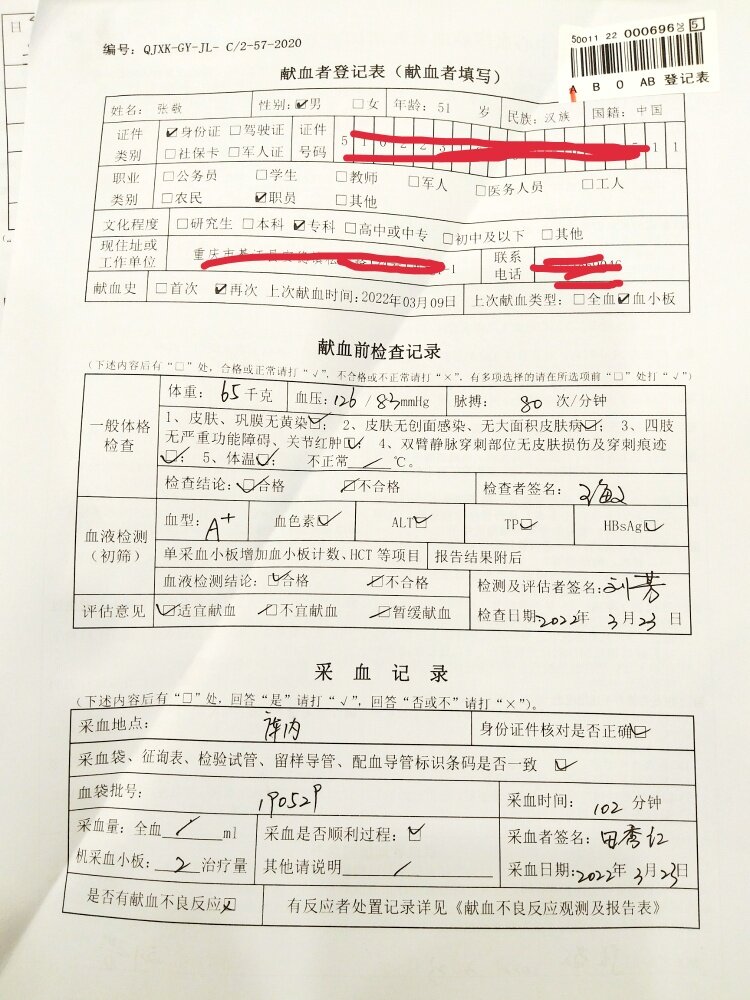 编号：QJXK-GY-JL- C/2-57-2020
S0011 22 000696 20 5
A B O AB 登记表
献血者登记表（献血者填写）
姓名：张敬 性别：☑男 □女 年龄：51 岁 民族：汉族 国籍：中国
证件类别 ☑身份证 □驾驶证 □社保卡 □军人证 证件号码 5 1 0 2 2 3 1 1
职业类别 □公务员 □学生 □教师 □军人 □医务人员 □工人
□农民 ☑职员 □其他
文化程度 □研究生 □本科 ☑专科 □高中或中专 □初中及以下 □其他
现住址或工作单位 重庆市綦江县 -1 联系电话
献血史 □首次 ☑再次 上次献血时间：2022年03月09日 上次献血类型：□全血☑血小板
献血前检查记录
（下述内容后有“□”处，合格或正常请打“√”，不合格或不正常请打“×”，有多项选择的请在所选项前“□”处打“√”）
一般体格检查 体重：65千克 血压：126/83mmHg 脉搏：80 次/分钟
1、皮肤、巩膜无黄染☑；2、皮肤无创面感染、无大面积皮肤病☑；3、四肢
无严重功能障碍、关节红肿☑；4、双臂静脉穿刺部位无皮肤损伤及穿刺痕迹
☑；5、体温☑； 不正常 / ℃。
检查结论：☑合格 □不合格 检查者签名：
血液检测（初筛） 血型：A+ 血色素☑ ALT☑ TP☑ HBsAg☑
单采血小板增加血小板计数、HCT 等项目 报告结果附后
血液检测结论：☑合格 □不合格 检测及评估者签名：刘芳
评估意见 ☑适宜献血 □不宜献血 □暂缓献血 检查日期：2022年 3月23日
采 血 记 录
（下述内容后有“□”处，回答“是”请打“√”，回答“否或不”请打“×”）。
采血地点： 库内 身份证件核对是否正确☑
采血袋、征询表、检验试管、留样导管、配血导管标识条码是否一致 ☑
血袋批号： 190529 采血时间： 102 分钟
采血量：全血 / ml 采血是否顺利过程：☑ 采血者签名：田秀红
机采血小板： 2 治疗量 其他请说明 / 采血日期：2022年 3月23日
是否有献血不良反应☒ 有反应者处置记录详见《献血不良反应观测及报告表》